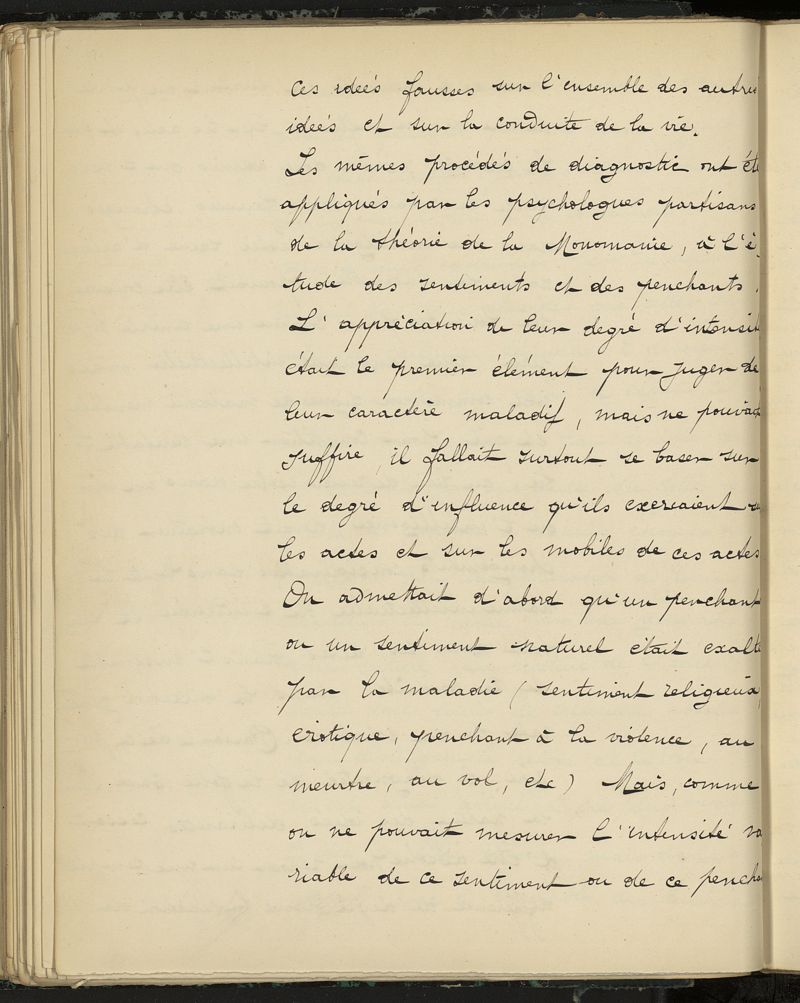 Ces ideés fausses sur l'ensemble des autres
ideés et sur la conduite de la vie.
Les mêmes procédés de diagnostic ont été
appliqués par les psychologues partisans
de la théorie de la Monomanie, à l'é
tude des sentiments et des penchants.
L'appréciation de leur degré d'intensit
était le premier élément pour juger de
leur caractère maladif, mais ne pouvait
suffire, il fallait surtout se baser sur
le degré d'influence qu'ils exerçaient
les actes et sur les mobiles de ces actes
On admettait d'abord qu'un penchant
ou un sentiment naturel était exalté
par la maladie (sentiment religieux,
érotique, penchant à la violence, au
meurtre, au vol, etc) Mais, comme
on ne pouvait mesurer l'intensité va
riable de ce sentiment ou de ce pencha